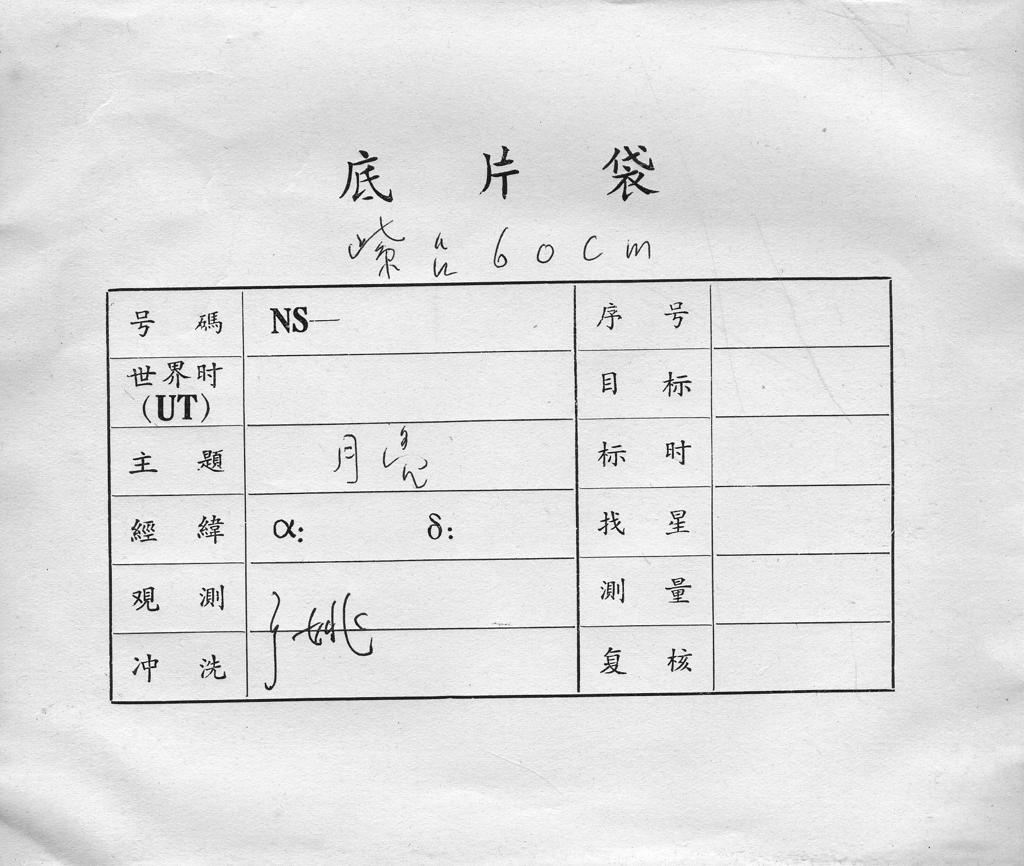 底片袋
紫台60cm
号碼 NS— 序号
世界时 目标
(UT)
主題 月亮 标时
經緯 α: δ: 找星
观測 姚 測量
冲洗 复核